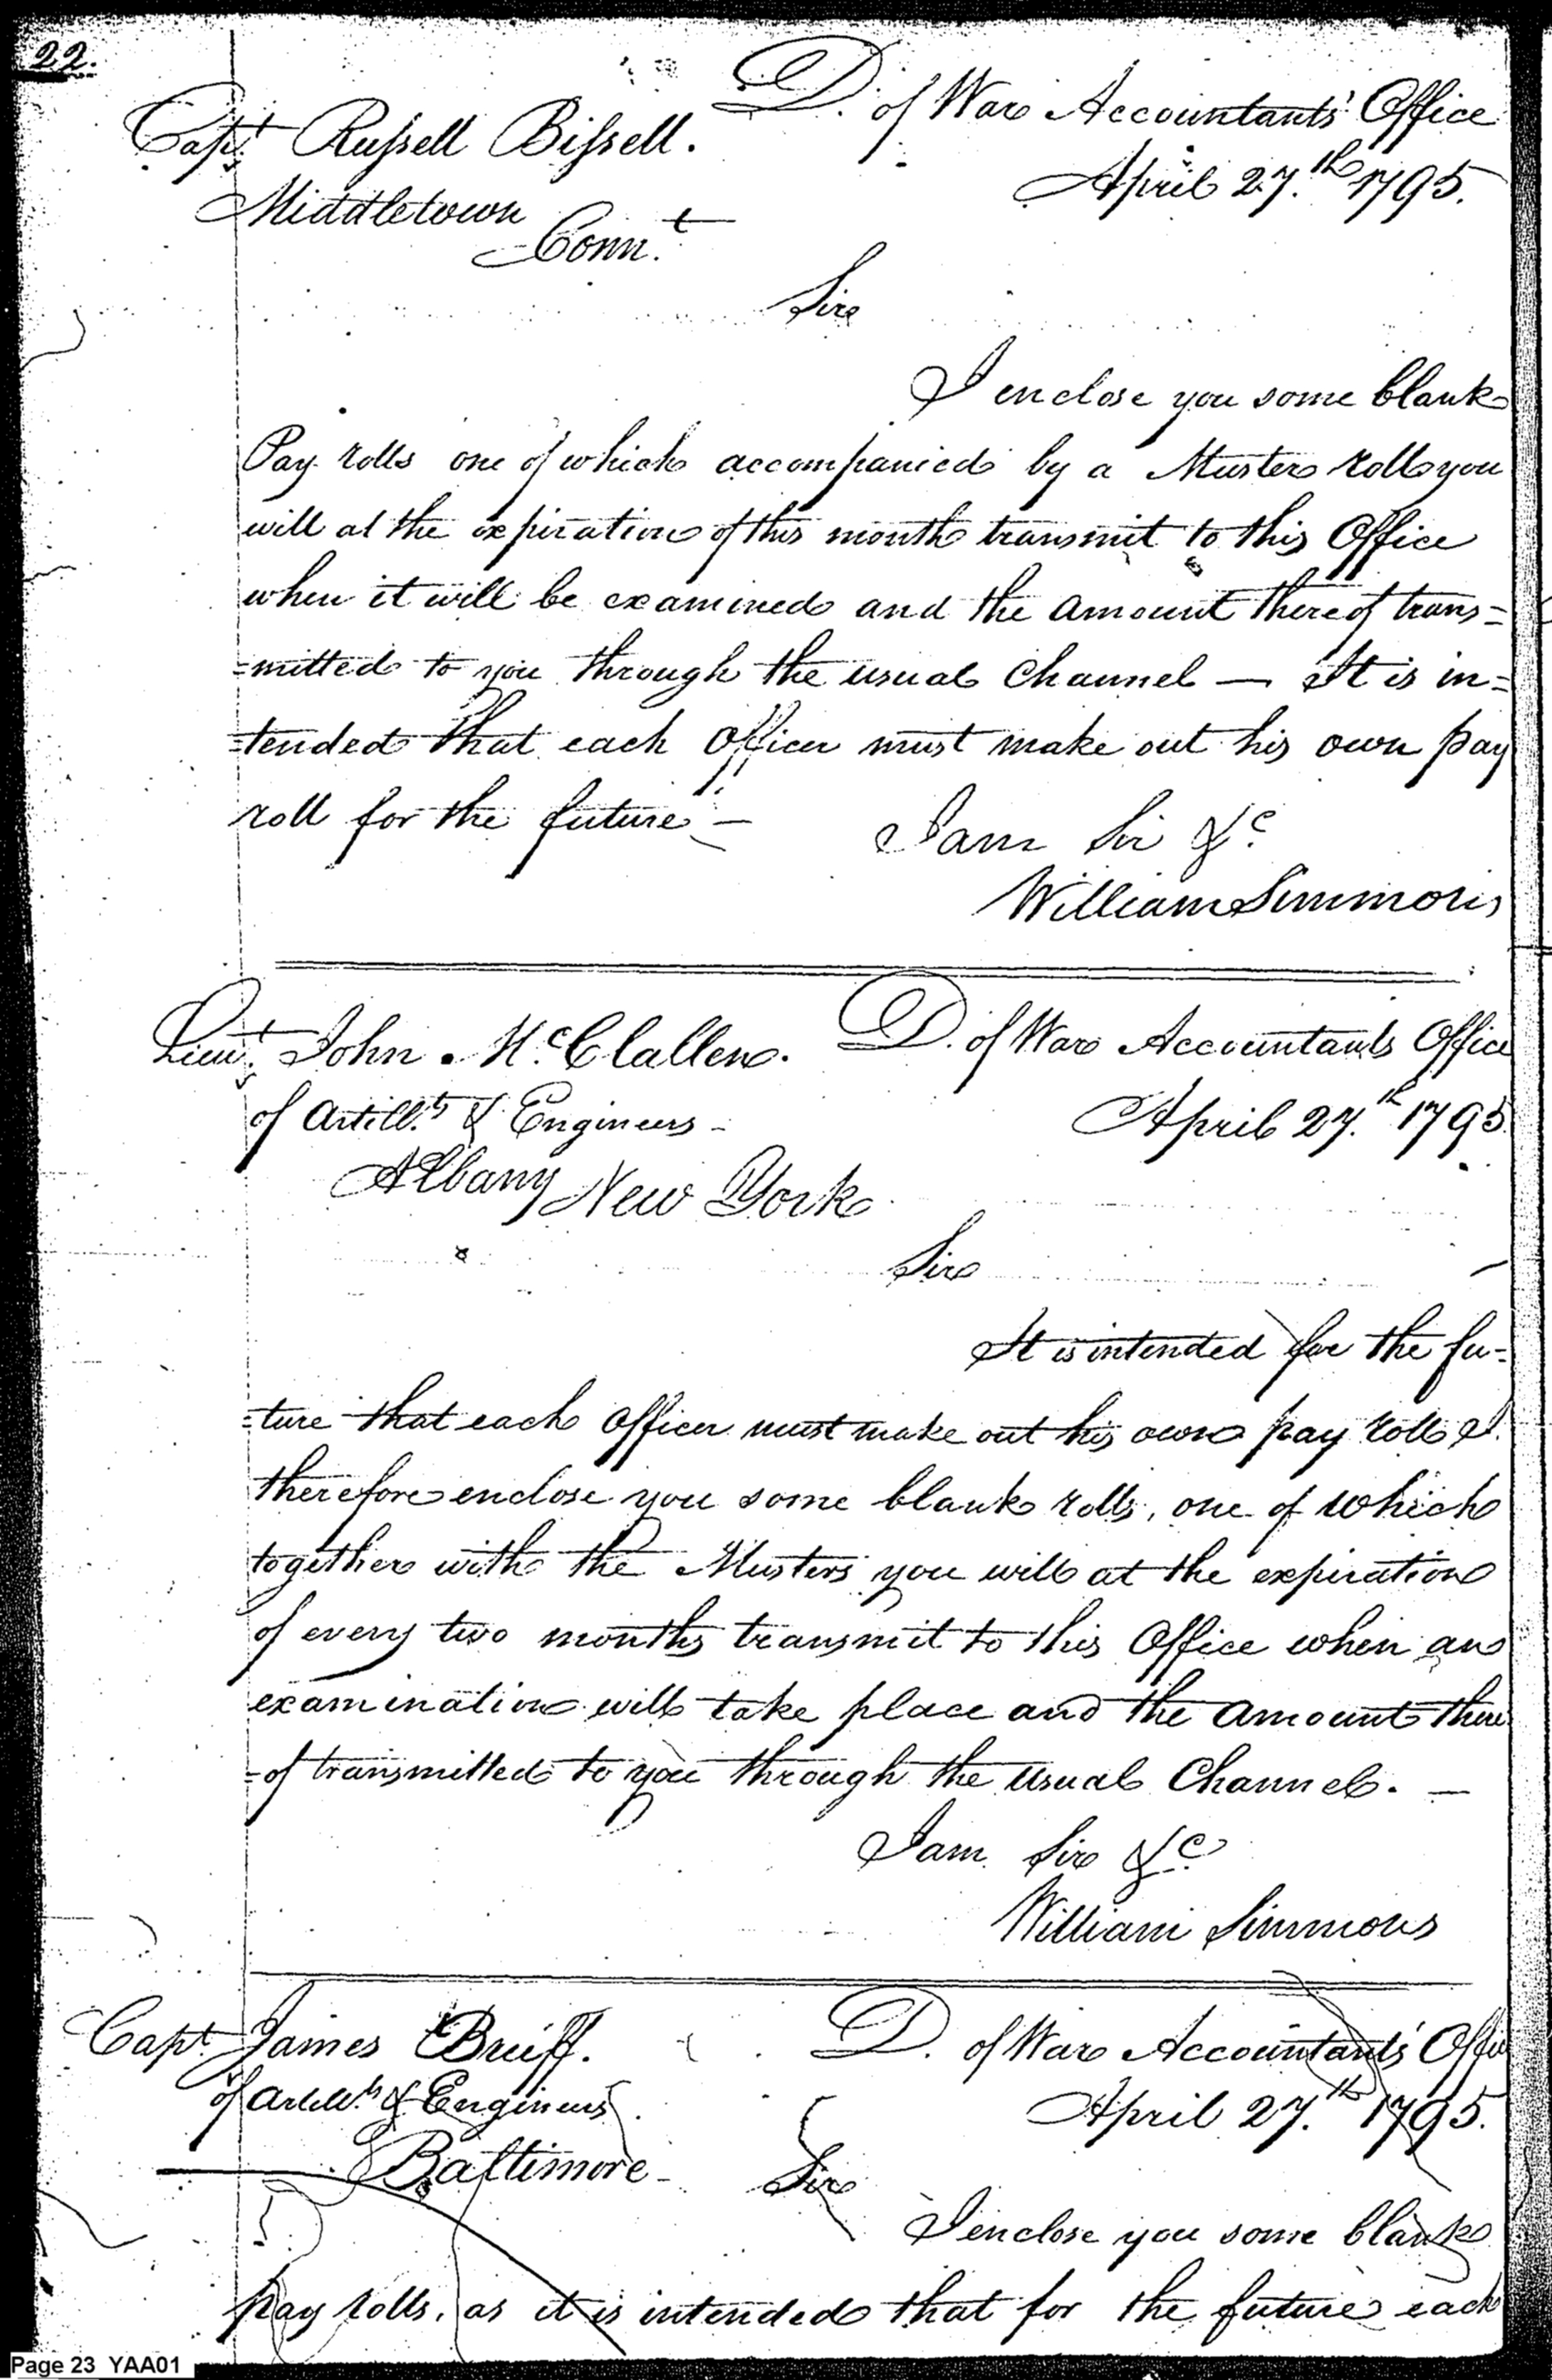 22.
D. of War Accountants' Office
Capt. Russell Bissell.
April 27.th 1795.
Middletown
Conn.t
Sir
I enclose you some blank
Pay rolls one of which accompanied by a Muster roll you
will at the expiration of this month transmit to this Office
when it will be examined and the amount thereof trans=
=mitted to you through the usual Channel — It is in=
=tended that each Officer must make out his own pay
roll for the future —
I am Sir &c.
William Simmons
Lieut. John McClallen. D. of War Accountants Office
of Artill.ts & Engineers - April 27.th 1795.
Albany New York
Sir
It is intended for the fu=
=ture that each Officer must make out his own pay roll I
therefore enclose you some blank rolls, one of which
together with the Musters you will at the expiration
of every two months transmit to this Office when an
examination will take place and the amount there
=of transmitted to you through the usual Channel. —
I am Sir &c.
William Simmons
Capt. James Bruff. D. of War Accountants' Office
of Artill.ts & Engineers April 27.th 1795.
Baltimore - Sir
I enclose you some blank
pay rolls, as it is intended that for the future each
Page 23 YAA01